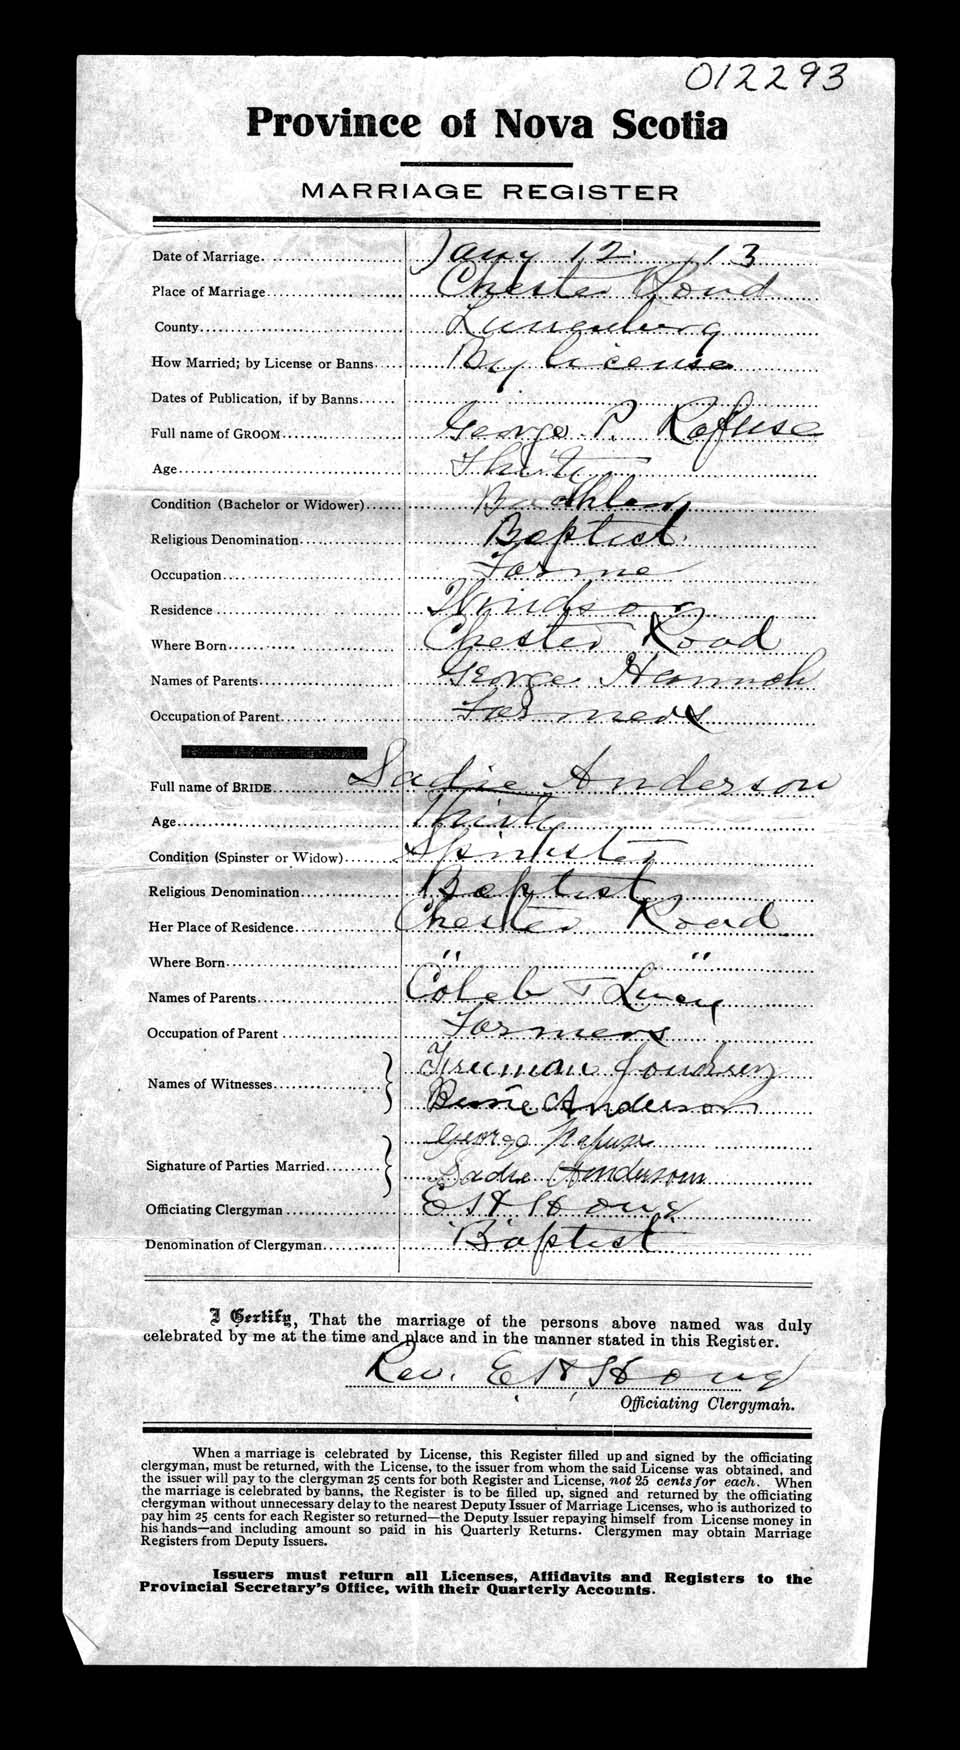 012293
Province of Nova Scotia
MARRIAGE REGISTER
Date of Marriage Jany 12 13
Place of Marriage Chester Road
County Lunenburg
How Married; by License or Banns By license
Dates of Publication, if by Banns
Full name of GROOM George P. Refuse
Age Thirty
Condition (Bachelor or Widower)
Religious Denomination Baptist
Occupation Farme
Residence Windsor
Where Born Chester Road
Names of Parents George Hannah
Occupation of Parent Farmers
Full name of BRIDE Sadie Anderson
Age Thirty
Condition (Spinster or Widow) Spinster
Religious Denomination Baptist
Her Place of Residence Chester Road
Where Born " "
Names of Parents Coleb
Occupation of Parent Farmers
Names of Witnesses Truman
Anderson
George Refuse
Signature of Parties Married Sadie Anderson
Officiating Clergyman
Denomination of Clergyman Baptist
I Certify, That the marriage of the persons above named was duly
celebrated by me at the time and place and in the manner stated in this Register.
Rev.
Officiating Clergyman.
When a marriage is celebrated by License, this Register filled up and signed by the officiating
clergyman, must be returned, with the License, to the issuer from whom the said License was obtained, and
the issuer will pay to the clergyman 25 cents for both Register and License, not 25 cents for each. When
the marriage is celebrated by banns, the Register is to be filled up, signed and returned by the officiating
clergyman without unnecessary delay to the nearest Deputy Issuer of Marriage Licenses, who is authorized to
pay him 25 cents for each Register so returned—the Deputy Issuer repaying himself from License money in
his hands—and including amount so paid in his Quarterly Returns. Clergymen may obtain Marriage
Registers from Deputy Issuers.
Issuers must return all Licenses, Affidavits and Registers to the
Provincial Secretary's Office, with their Quarterly Accounts.